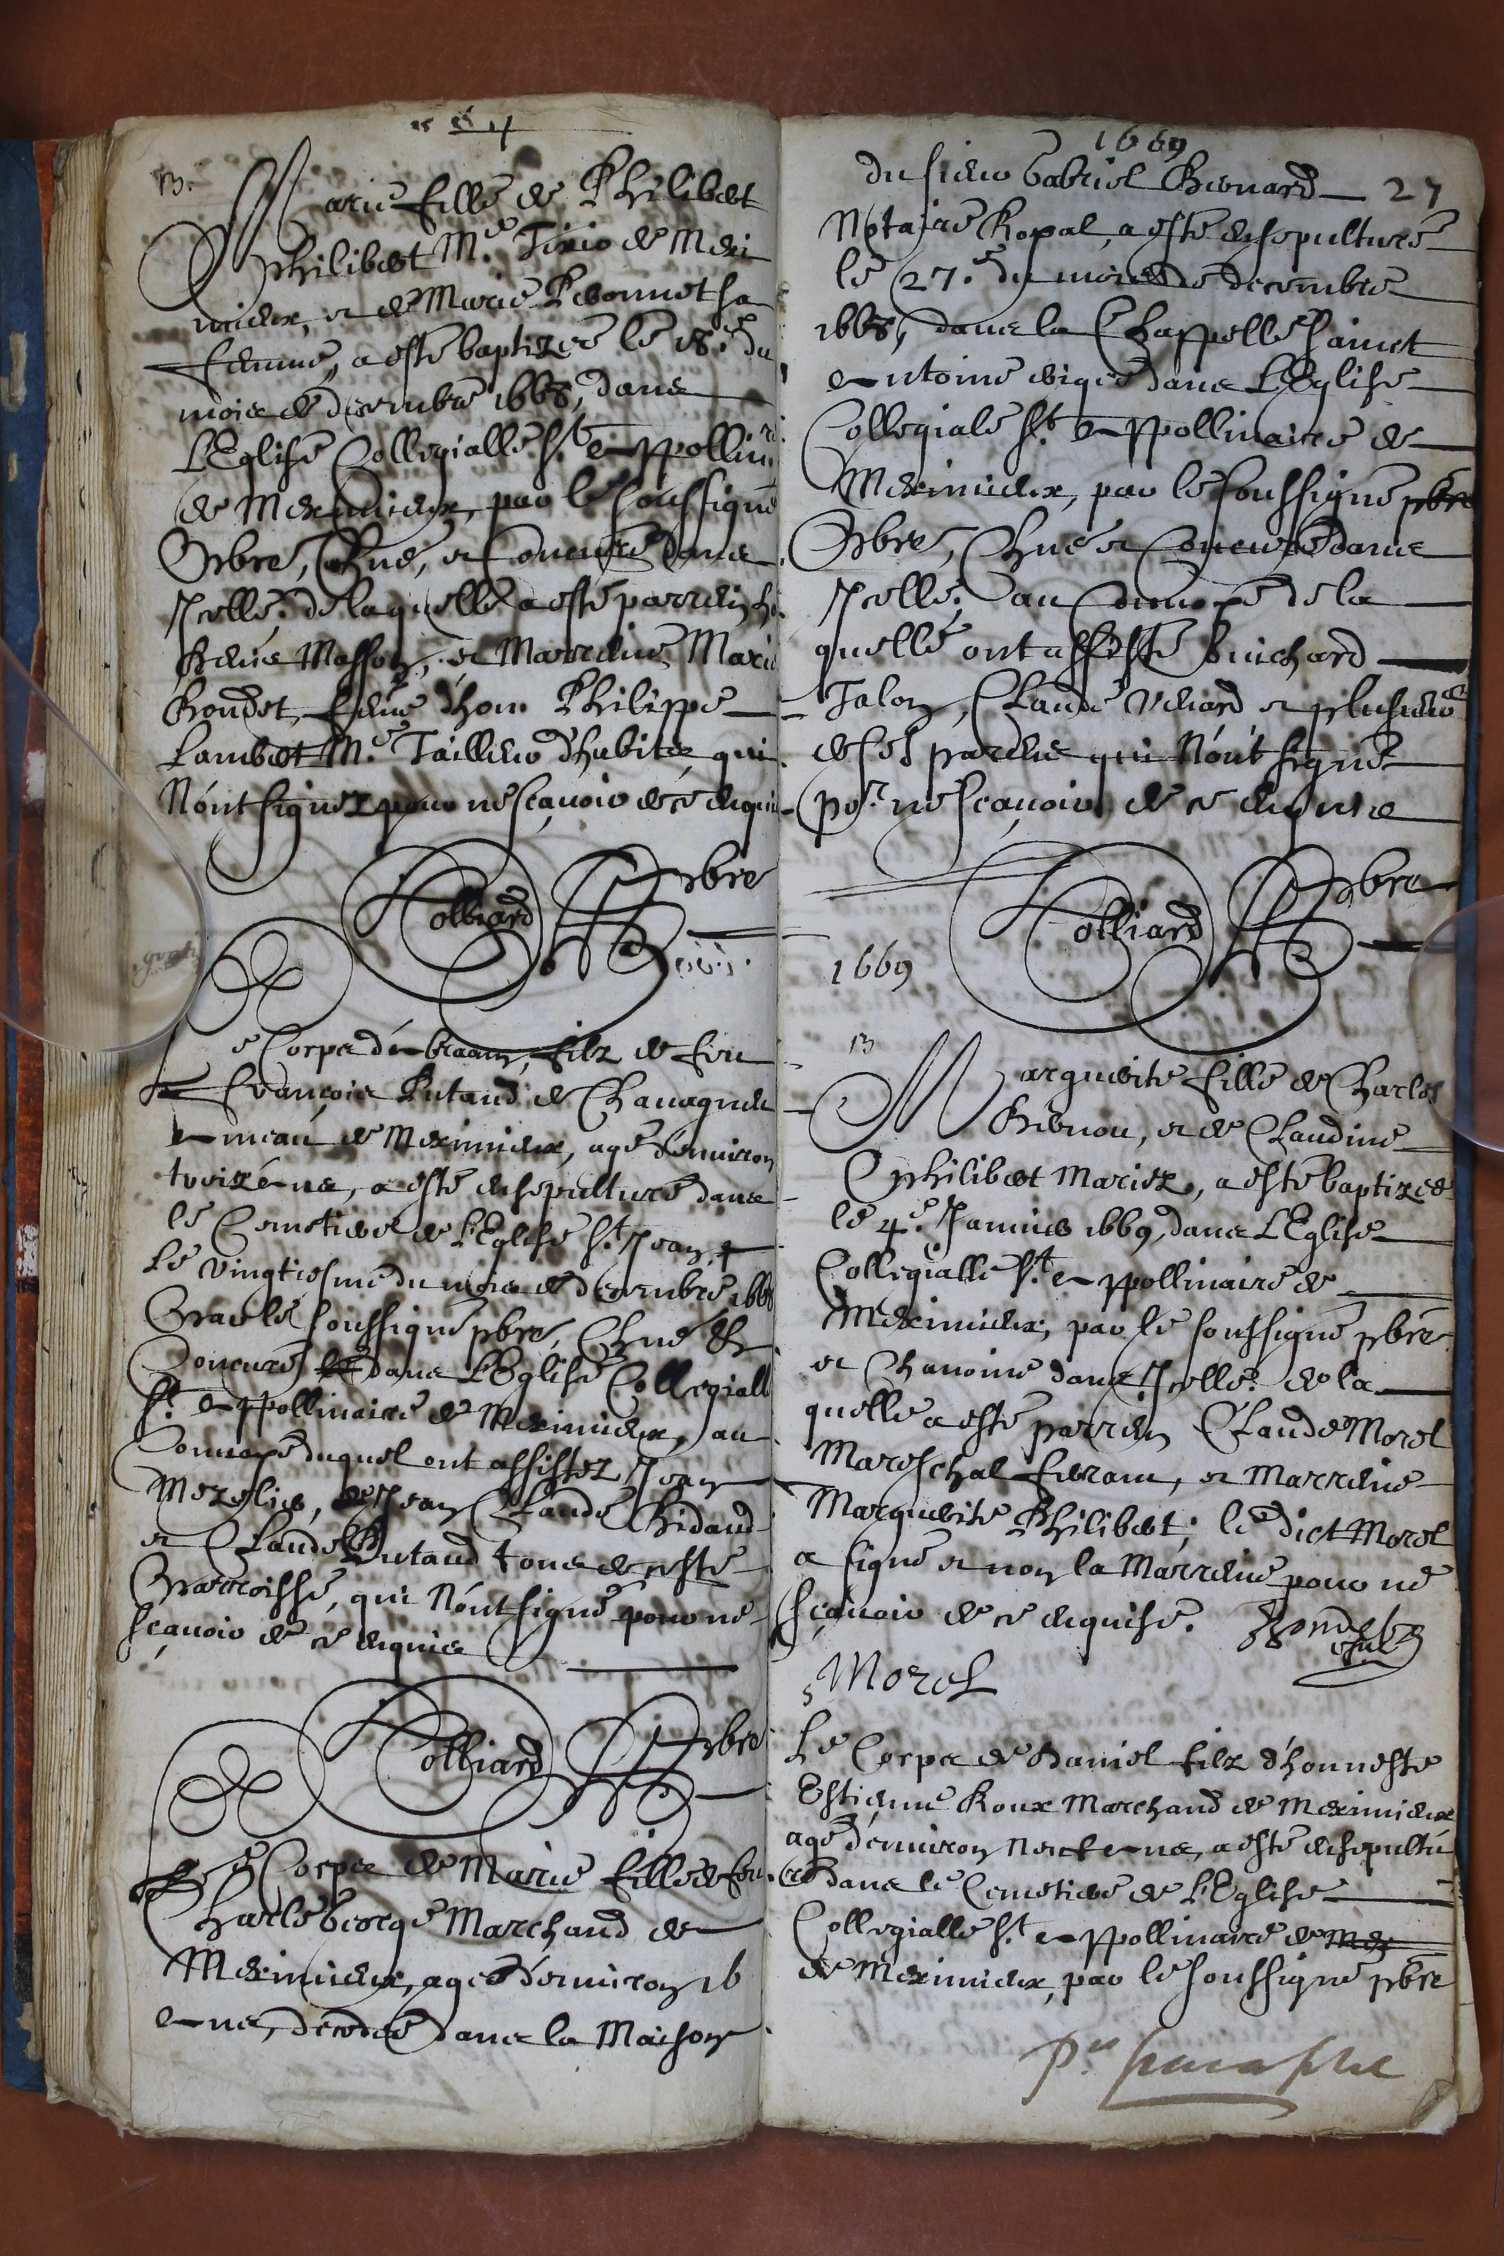 B.
Marie fille de Philibert
Philibert M.e Tixie de Mexi
mieux, et de Marie Peronnet sa
femme, a esté baptizée le 18.e du
mois de decembre 1668, dans
L'Eglise Collegialle St. Appollin.re
de Meximieux, par le soussigné
Pbre, Chne, et Concuré dans
Icelle. de laquelle a esté parrein h.
René Masson, et Marreine Marie
Rondet, feme d'hon. Philippe
Lambert M.e Tailleur d'habits, qui
N'ont signez pour ne sçauoir de ce enquis
Colliard Pbre
Le Corps d'Abraam, filz de feu
François Putaud de Chauagneu
Ameau de Meximieux, agé d'enuiron
treizé ans, a esté ensepulturé dans
le Cemetiere de l'Eglise St. Jean,
Le vingtiesme du mois de decembre 1668
Par le soussigné pbre, Chne &
Concuré dans L'Eglise Collegiall
St. Appollinaire de Meximieux, au
Conuoyé duquel ont assistez Jean
Mezelier, Jean Claude Ridaud
et Claude Putaud tous de ceste
Parroisse, qui N'ont signé pour ne
sçauoir de ce enquis
Colliard Pbre
Le Corps de Marie fille de feu
Charle George Marchand de
Meximieux, agée d'enuiron 16
ans, décedée dans la Maison
1669
du sieur Gabriel Chenard 27
Notaire Royal, a esté ensepulturé
le 27.e du mois de decembre
1668, dans la Chappelle Sainct
Antoine erigée dans L'Eglise
Collegiale St. Appollinaire de
Meximieux, par le soussigné pbre
Pbre, Chne et Concuré dans
Icelle. au Conuoyé de la
quelle ont assisté Guichard
Jalon, Claude Veuard et plusieurs
de ses parens qui N'ont signé
po.r ne sçauoir de ce enquis
Colliard Pbre
1669
B
Marguerite fille de Charles
Chenou, et de Claudine
Philibert Mariez, a esté baptizée
le 4.e Januier 1669, dans L'Eglise
Collegialle St. Appollinaire de
Meximieux, par le soussigné pbre
et Chanoine dans Icelle. de la
quelle a esté parrein Claude Morel
Mareschal ferrant, et Marreine
Marguerite Philibert; le dict Morel
a signé et non la Marreine pour ne
sçauoir de ce enquise. Rondet
Morel
Le Corps de Daniel filz d'honneste
Estienne Roux Marchand de Meximieux
agé d'enuiron Neuf ans, a esté ensepultu
ré dans le Cemetiere de L'Eglise
Collegialle St. Appollinaire de Mex
de Meximieux, par le soussigné pbre
paraphe